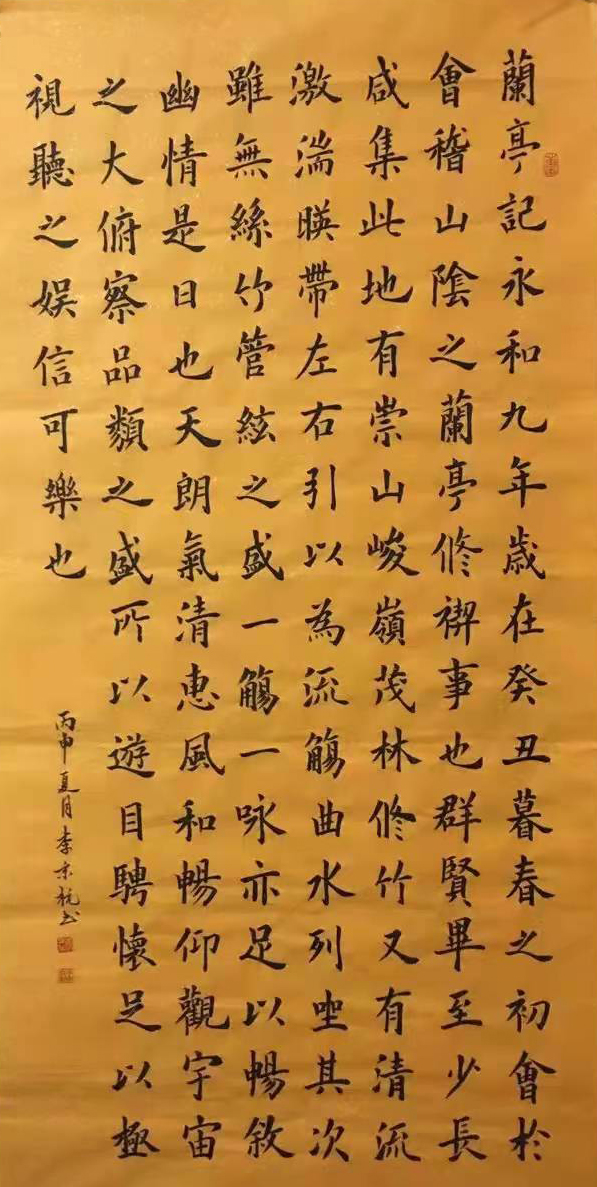 蘭亭記永和九年歲在癸丑暮春之初會於
會稽山陰之蘭亭修禊事也群賢畢至少長
咸集此地有崇山峻嶺茂林修竹又有清流
激湍暎帶左右引以為流觴曲水列坐其次
雖無絲竹管絃之盛一觴一咏亦足以暢敘
幽情是日也天朗氣清惠風和暢仰觀宇宙
之大俯察品類之盛所以遊目騁懷足以極
視聽之娛信可樂也
丙申夏月李